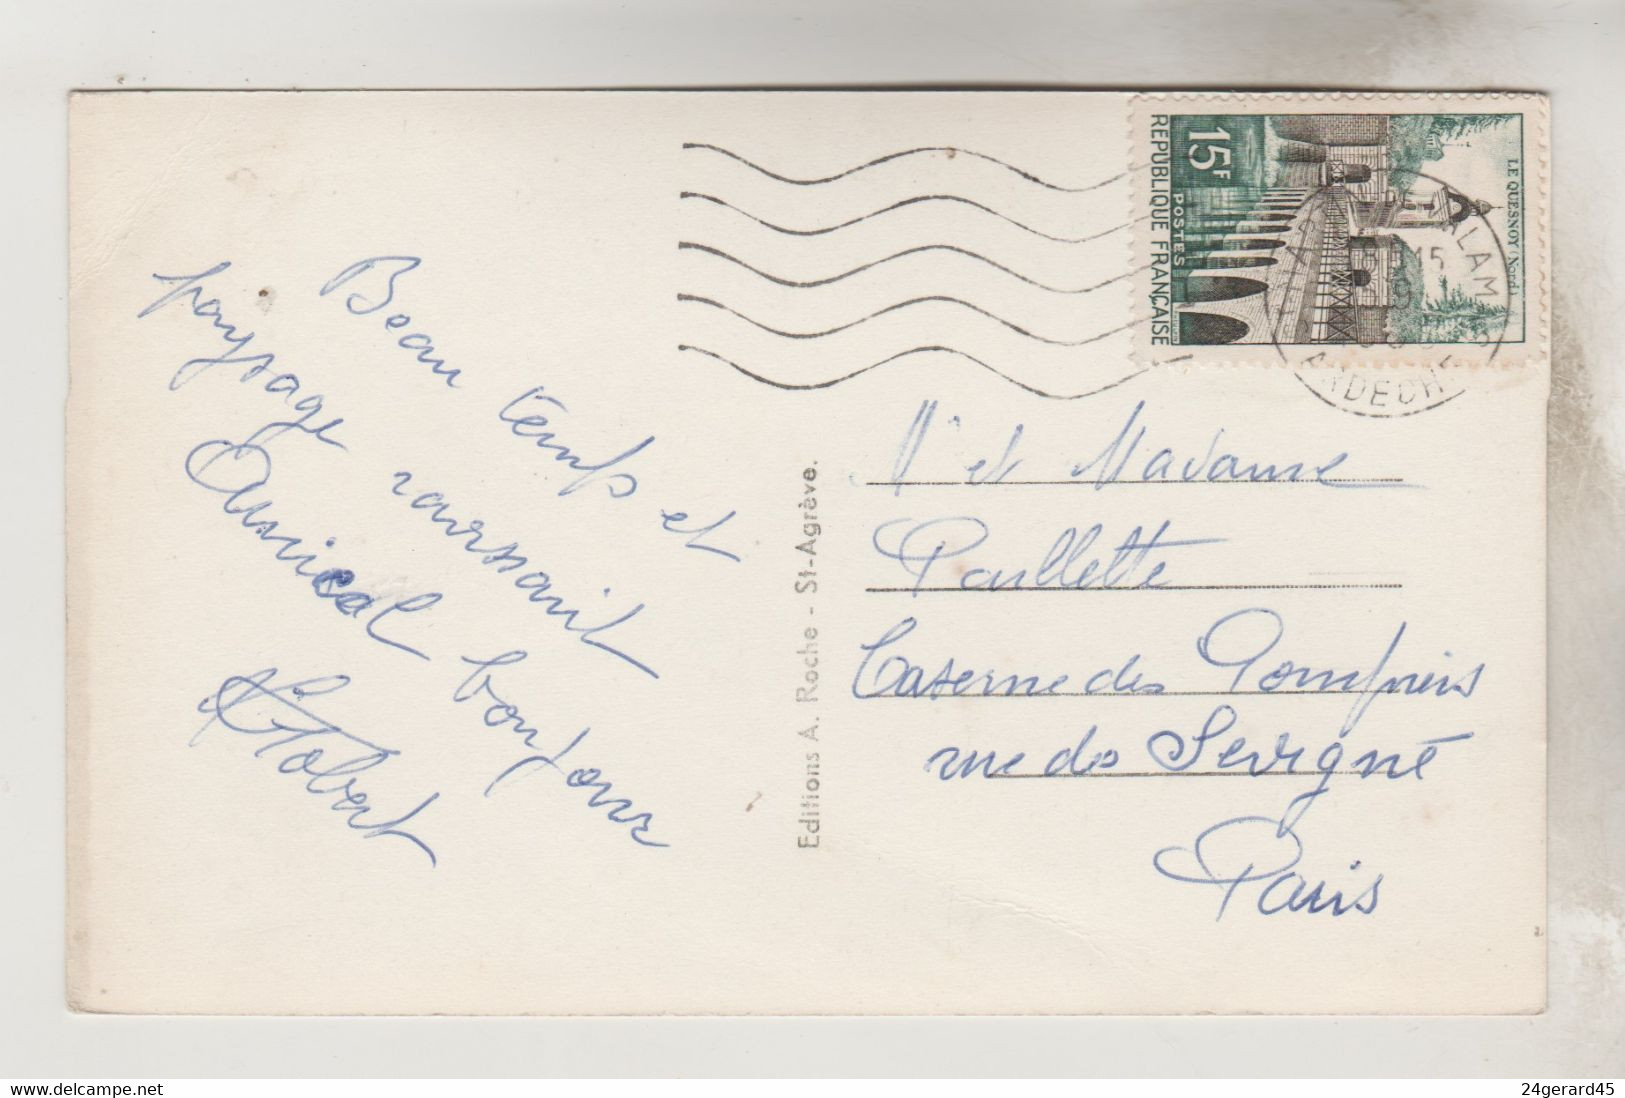 Beau temps et
paysage ravissant
Amical bonjour
Robert
Editions A. Roche - St-Agrève.
REPUBLIQUE FRANÇAISE
15F
POSTES
LE QUESNOY (Nord)
ALAM
15
9
ARDECHE
M et Madame
Paullette
Caserne des Pompiers
rue de Sevigné
Paris
24gerard45
delcampe.net